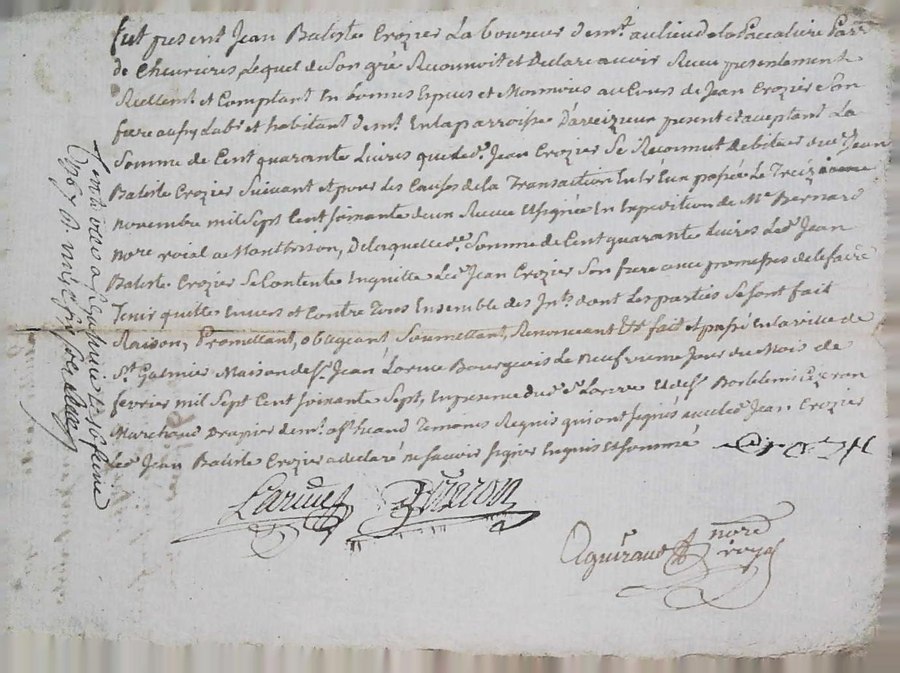 fut present Jean Batiste Crozier Laboureur demt. au lieu de la Paccaliere Parr
de Chevrieres Lequel de Son gré Reconnoit et Declare avoir Receu presentement
Reellemt. et Comptant En bonnes Especes et Monnoies au Cours de Jean Crozier Son
frere aussy Labr. et habitant demt. En la parroisse D'aveizieux present et aceptant La
Somme de Cent quarante Livres que led. Jean Crozier Se Reconnut Debiteur aud. Jean
Batiste Crozier Suivant et pour les Causes de la Transaction Entr'Eux passée Le Treizieme
novembre mil Sept Cent soixante deux Receue Et signée En Expedition de Me. Bernard
nore roial a Montbrison, De laquelle de. Somme de Cent quarante Livres Led. Jean
Batiste Crozier Se Contente En quitte Led. Jean Crozier Son frere avec promesses de le faire
Tenir quitte Envers et Contre Tous Ensemble des Ints. dont Les parties Se sont fait
Raison, Promettant, obligeant Soumettant, Renonceant &c fait et passé En la ville de
St. Galmier Maison de Sr. Jean Larüe Bourgeois Le neufvieme Jour du Mois de
fevrier mil Sept Cent soixante Sept, En presence dud. Sr. Larüe Et de Sr.
Marchand Drapier demt. aud. Temoins Requis qui ont signés avec led. Jean Crozier
Led. Jean Batiste Crozier a declaré ne Savoir signer Enquis Et sommé
Larüe
nore
royal